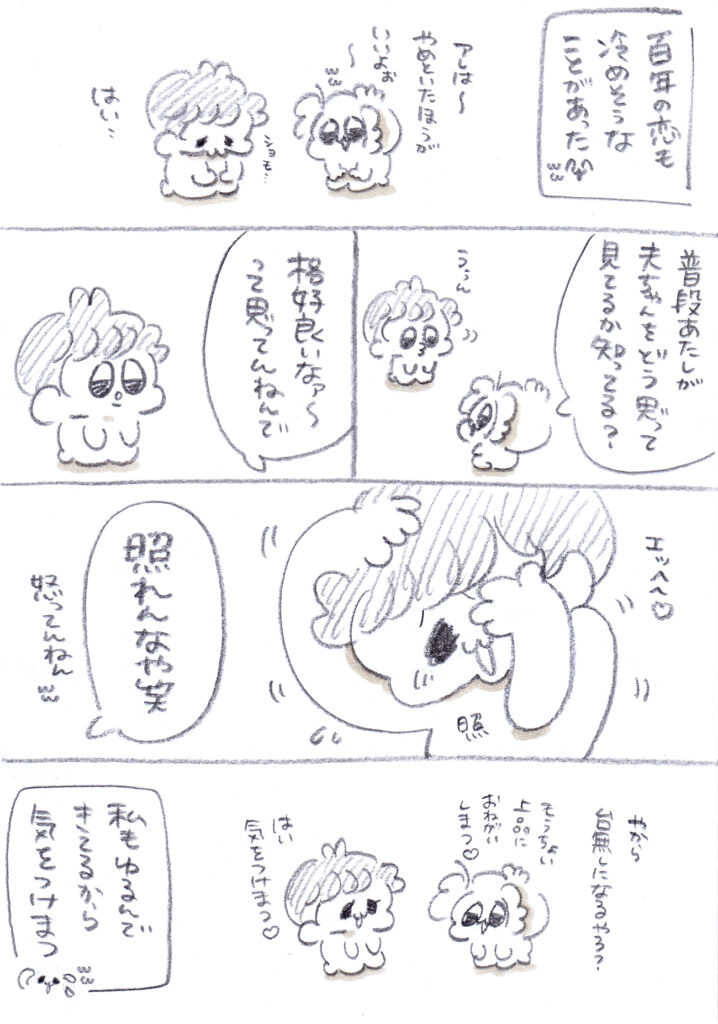 百年の恋も
冷めそうな
ことがあった
アレは〜
やめといたほうが
いいよぉ
〜
ショモ…
はい…
普段あたしが
夫ちゃんをどう思って
見てるか知ってる?
ううん
格好良いなァ〜
って思ってんねんで
エッヘヘ♡
照
照れんなや笑
怒ってんねん
やから
台無しになるやろ?
もうちょい
上品に
おねがい
しまつ♡
はい
気をつけまつ♡
私もゆるんで
きてるから
気をつけまつ